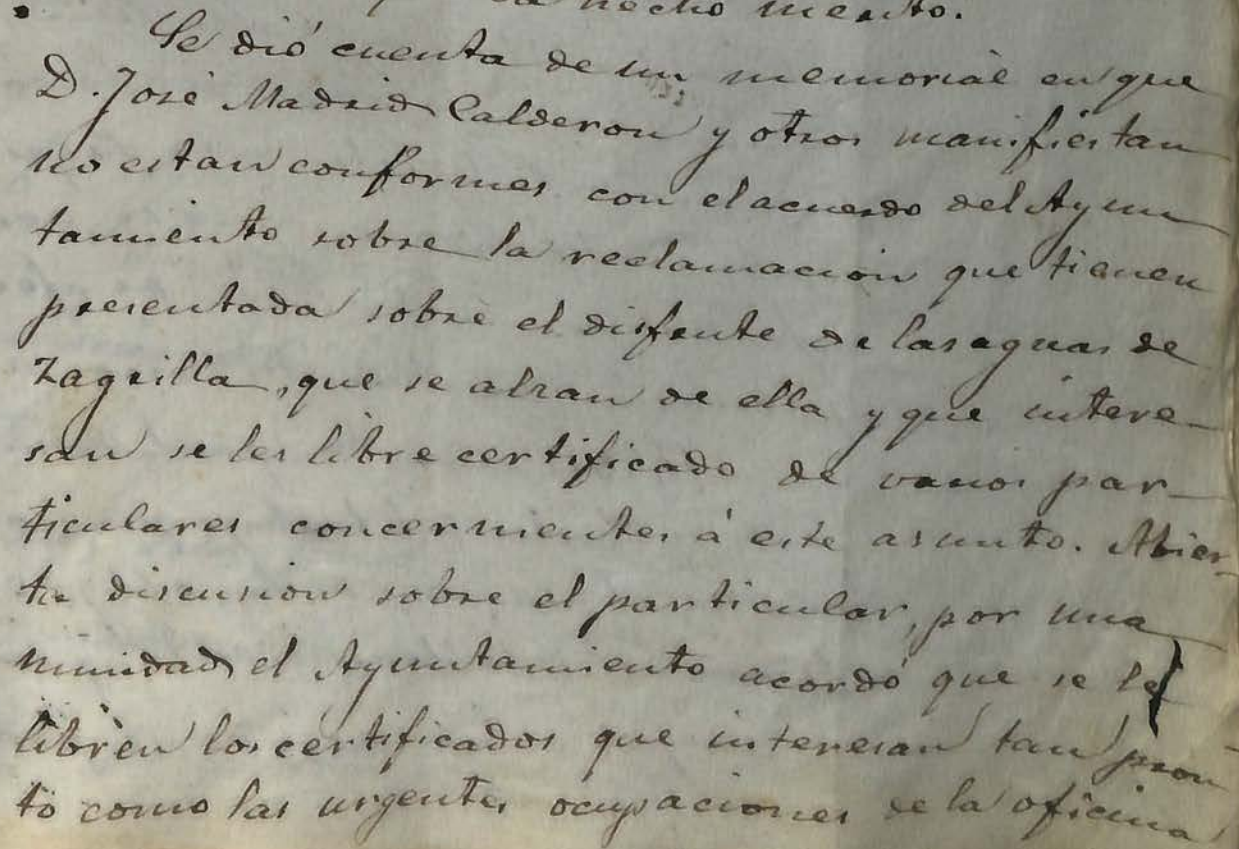 hecho merito.
Se dió cuenta de un memorial en que
D. José Madrid Calderon y otros manifiestan
no estan conformes con el acuerdo del Ayun
tamiento sobre la reclamacion que tienen
presentada sobre el disfrute de las aguas de
Zagrilla, que se alzan de ella y que intere-
san se les libre certificado de varios par-
ticulares concernientes á este asunto. Abier-
ta discusion sobre el particular, por una
nimidad el Ayuntamiento acordó que se le
libren los certificados que interesan tan pron
to como las urgentes ocupaciones de la oficina